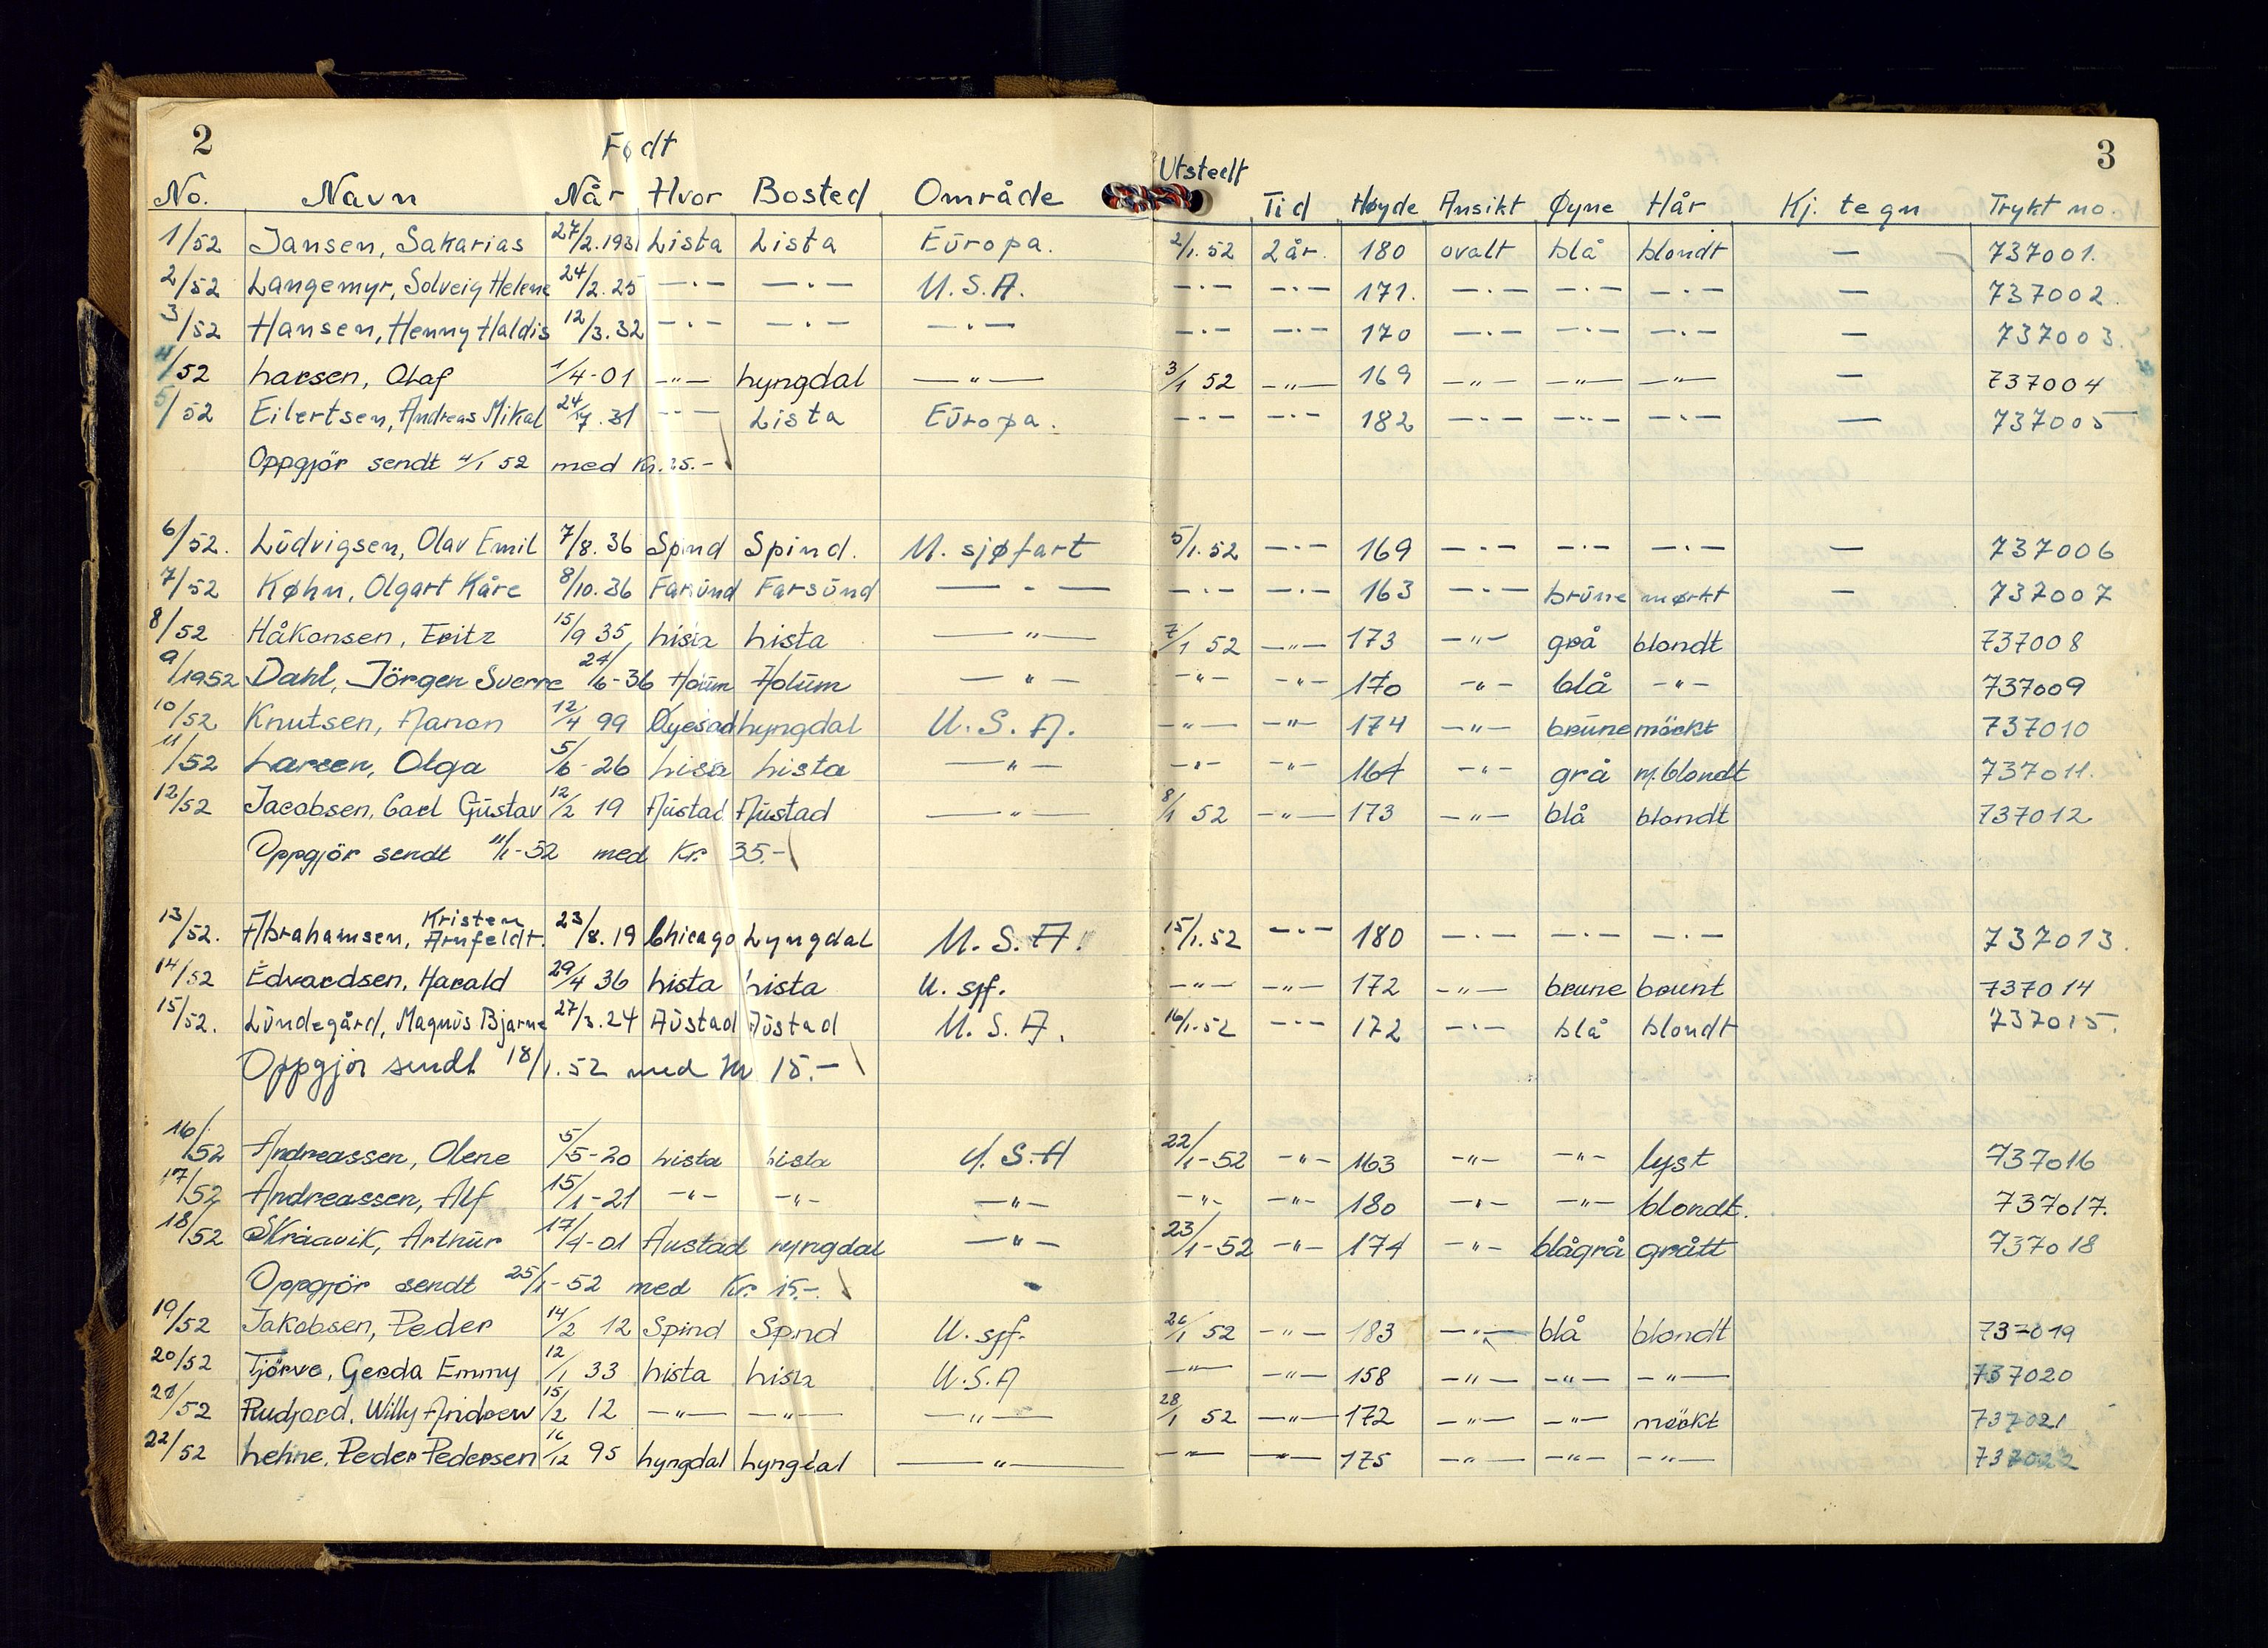 2 3
Født Utstedt
No. Navn Når Hvor Bosted Område Tid Høyde Ansikt Øyne Hår Kj. tegn Trykt no.
1/52 Jansen, Sakarias 27/2.1931 Lista Lista Europa. 2/1.52 2 år. 180 ovalt blå blondt — 737001.
2/52 Langemyr, Solveig Helene 24/2.25 —·— —·— U.S.A. —·— —·— 171. —·— —·— —·— — 737002.
3/52 Hansen, Henny Haldis 12/3.32 —·— —·— —·— —·— —·— 170 —·— —·— —·— — 737003.
4/52 Larsen, Olaf 1/4-01 —"— Lyngdal —"— 3/1 52 —"— 169 —"— —"— —"— — 737004
5/52 Eilertsen, Andreas Mikal 24/7.31 —·— Lista Europa. —·— —·— 182 —·— —·— —·— — 737005
Oppgjör sendt 4/1 52 med Kr. 25.-
6/52. Ludvigsen, Olav Emil 7/8.36 Spind Spind. U. sjøfart 5/1.52 —·— 169 —·— —·— —·— — 737006
7/52 Køhn, Olgart Kåre 8/10.36 Farsund Farsund —·— —·— —·— 163 —·— brune mørkt — 737007
8/52 Håkonsen, Fritz 15/9 35 Lista Lista —"— 7/1 52 —"— 173 —"— grå blondt 737008
9/1952 Dahl, Jörgen Sverre 24/6-36 Holum Holum —"— —"— —"— 170 —"— blå —"— 737009
10/52 Knutsen, Aanon 12/4 99 Lyngdal U.S.A. —"— —"— 174 —"— brune mörkt 737010
11/52 Larsen, Olga 5/6-26 Lista Lista —"— —"— —"— 164 —"— grå m.blondt 737011.
12/52 Jacobsen, Carl Gustav 12/2 19 Austad Austad —"— 8/1 52 —"— 173 —"— blå blondt 737012
Oppgjör sendt 11/1-52 med Kr. 35.-
13/52. Abrahamsen, Kristen Arnfeldt. 23/8.19 Chicago Lyngdal U.S.A. 15/1.52 —·— 180 —·— —·— —·— 737013.
14/52 Edvardsen, Harald 29/4 36 Lista Lista U. sjf. —"— —"— 172 —"— brune brunt 737014
15/52. Lundegård, Magnus Bjarne 27/3.24 Austad Austad U.S.A. 16/1-52 —·— 172 —·— blå blondt 737015.
Oppgjör sendt 18/1.52 med kr 15.-
16/52 Andreassen, Olene 5/5-20 Lista Lista U.S.A 22/1-52 —"— 163 —"— —"— lyst 737016
17/52 Andreassen, Alf 15/1-21 —"— —"— —"— —"— —"— 180 —"— —"— blondt. 737017.
18/52 Skraavik, Arthur 17/4-01 Austad Lyngdal —"— 23/1-52 —"— 174 —"— blågrå grått 737018
Oppgjör sendt 25/1-52 med Kr. 15.-
19/52 Jakobsen, Peder 14/2 12 Spind Spind U. sjf. 26/1 52 —"— 183 —"— blå blondt 737019
20/52 Tjörve, Gerda Emmy 12/1 33 Lista Lista U.S.A —"— —"— 158 —"— —"— —"— 737020
21/52 Rudjord, Willy Andrew 15/2 12 —"— —"— —"— 28/1 52 —"— 172 —"— —"— mörkt 737021
22/52 Lehne, Peder Pedersen 16/12 95 Lyngdal Lyngdal —"— —"— —"— 175 —"— —"— —"— 737022